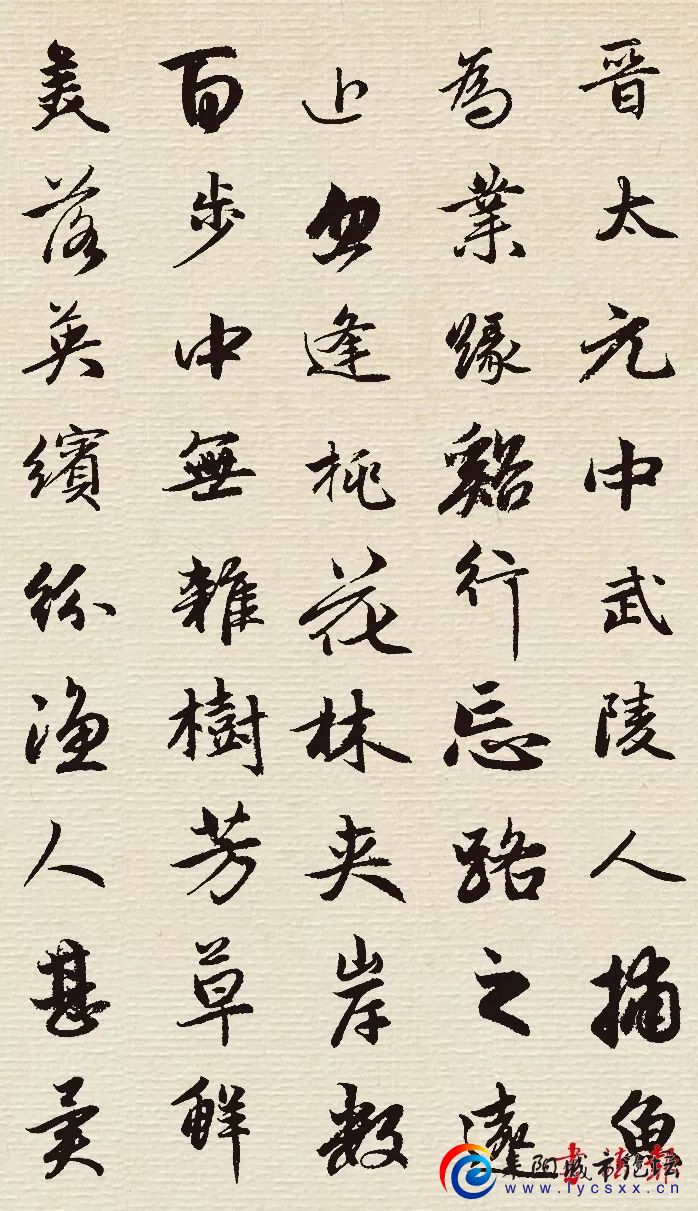 晋太元中武陵人捕魚
為業緣谿行忘路之遠
近忽逢桃花林夹岸数
百步中無雜樹芳草鮮
美落英繽紛漁人甚異
www.lycsxx.cn